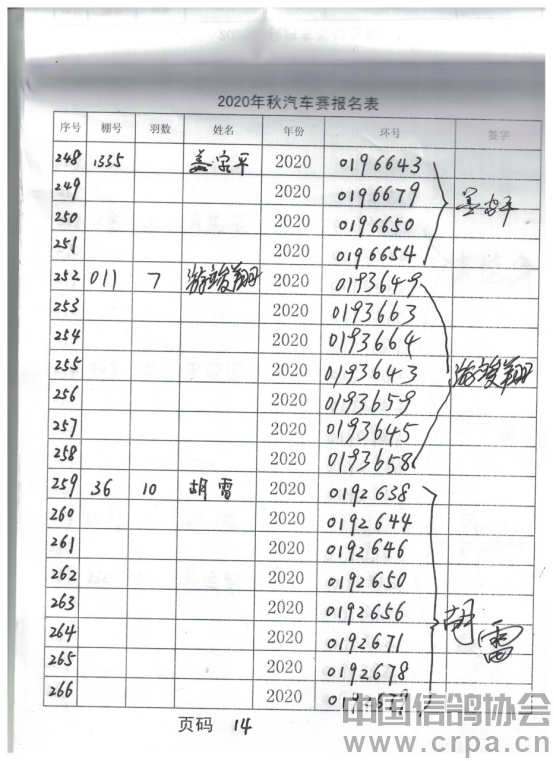 2020年秋汽车赛报名表
序号 棚号 羽数 姓名 年份 环号 签字
248 1335 盖宗平 2020 0196643
249 2020 0196679 盖宗平
250 2020 0196650
251 2020 0196654
252 011 7 游骏翔 2020 0193649
253 2020 0193663
254 2020 0193664
255 2020 0193643 游骏翔
256 2020 0193659
257 2020 0193645
258 2020 0193658
259 36 10 胡雷 2020 0192638
260 2020 0192644
261 2020 0192646
262 2020 0192650
263 2020 0192656
264 2020 0192671 胡雷
265 2020 0192678
266 2020
页码 14
中国信鸽协会
www.crpa.cn